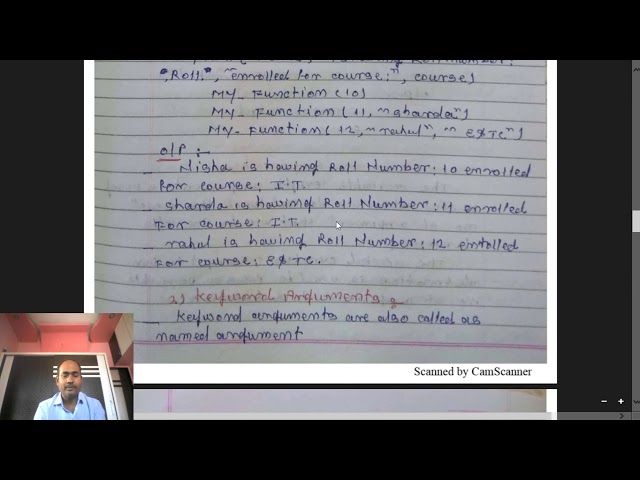 "Roll", "enrolled for course:", course)
My_ Function (10)
My_ Function (11, "sharda")
My_ Function (12, "rahul", "E&TC")
O/P :-
Nisha is having Roll Number: 10 enrolled
for course: I.T.
sharda is having Roll Number: 11 enrolled
for course: I.T.
rahul is having Roll Number: 12 entolled
for course: E&TC.
2) Keyword Arguments :
Keyword arguments are also called as
named argument
Scanned by CamScanner